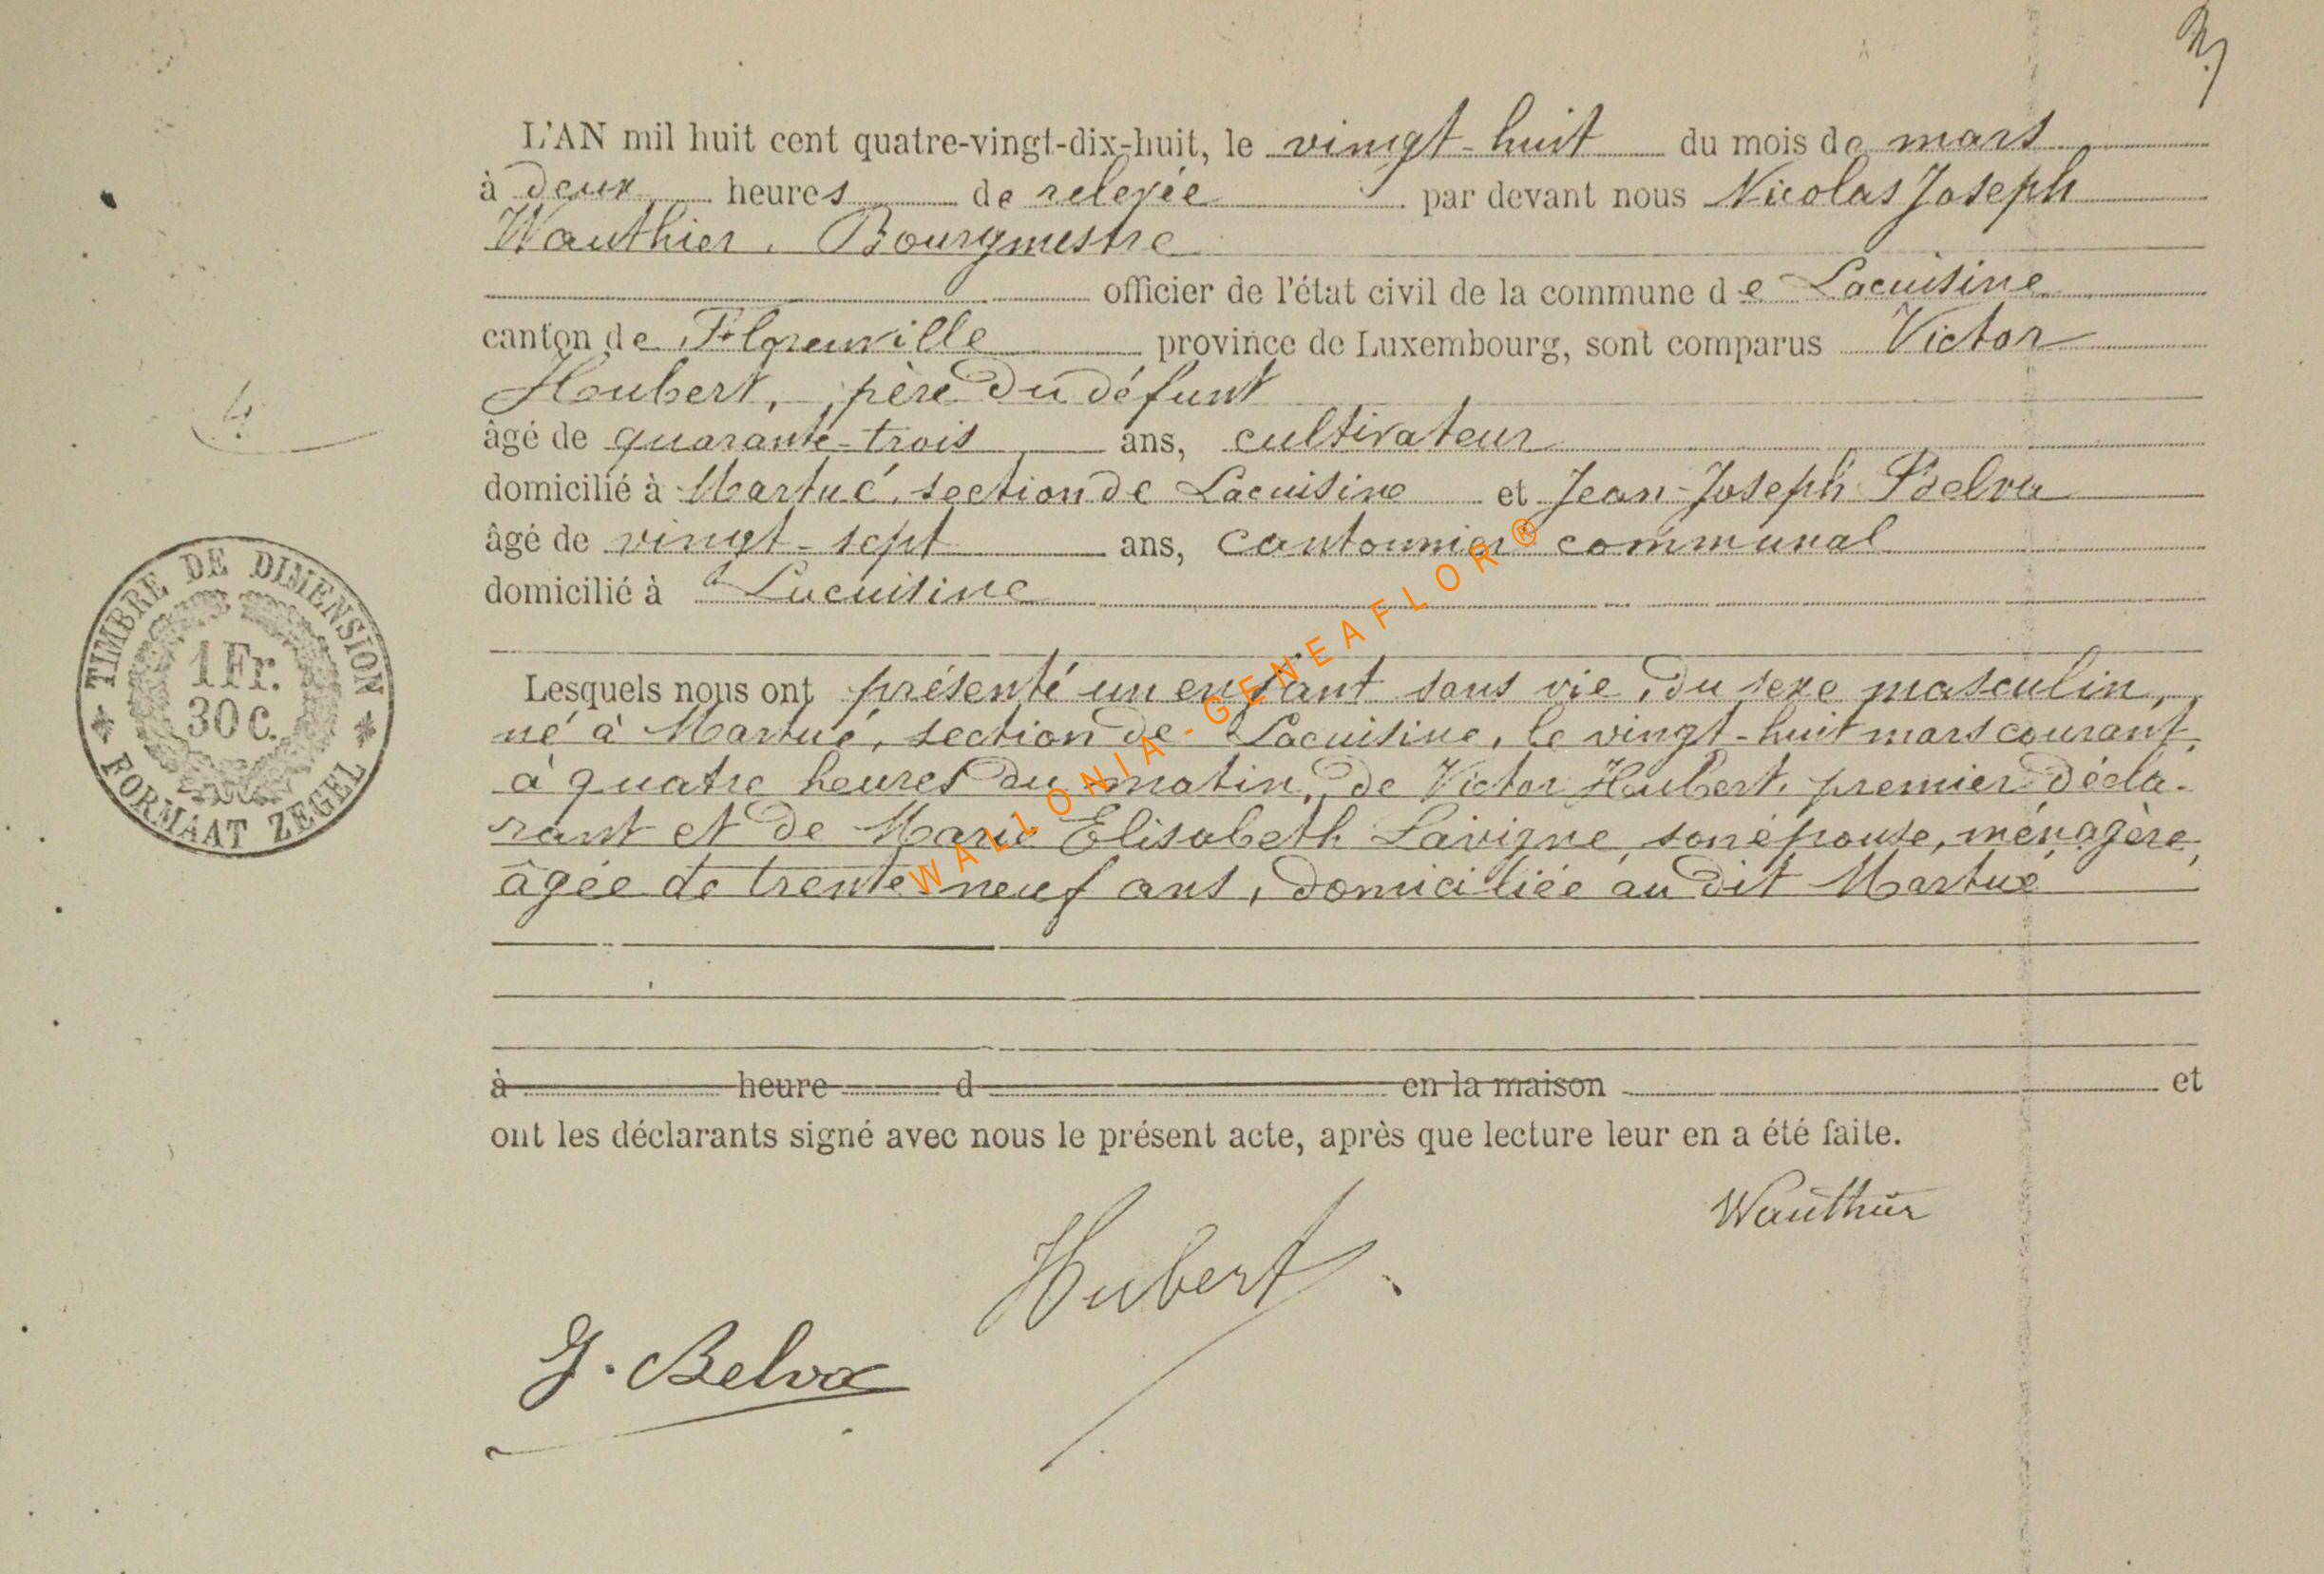 L'AN mil huit cent quatre-vingt-dix-huit, le vingt-huit du mois de mars
à deux heures de relevée par devant nous Nicolas Joseph
Wauthier, Bourgmestre
officier de l'état civil de la commune de Lacuisine
canton de Florenville province de Luxembourg, sont comparus Victor
Houbert, père du défunt
âgé de quarante-trois ans, cultivateur
domicilié à Martué, section de Lacuisine et Jean-Joseph Belva
âgé de vingt-sept ans, cantonnier communal
domicilié à Lacuisine
Lesquels nous ont présenté un enfant sans vie, du sexe masculin,
né à Martué, section de Lacuisine, le vingt-huit mars courant,
à quatre heures du matin, de Victor Houbert, premier décla-
rant et de Marie Elisabeth Lavigne, son épouse, ménagère,
âgée de trente-neuf ans, domiciliée au dit Martué
à heure d en la maison et
ont les déclarants signé avec nous le présent acte, après que lecture leur en a été faite.
Wauthier
Hubert
J. Belva
4
TIMBRE DE DIMENSION
1 Fr.
30 C.
FORMAAT ZEGEL
WALLONIA-GENEAFLOR®